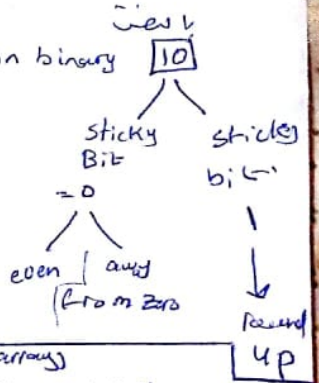 in binary 10
sticky
Bit
= 0
sticky
bit
1
even
away
from zero
Round
up
arrays